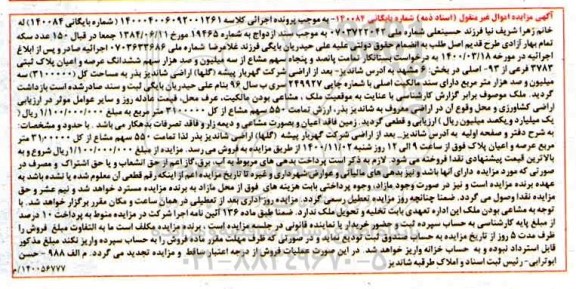 آگهی مزایده اموال غیر منقول (اسناد ذمه) شماره بایگانی ۱۲۰۰۸۴- به موجب پرونده اجرائی کلاسه ۱۴۰۰۰۴۰۰۶۰۹۲۰۰۱۲۶۱ (شماره بایگانی ۱۴۰۰۰۸۴) له
خانم زهرا شریف نیا فرزند حسینعلی شماره ملی ۰۷۰۳۷۲۲۰۴۲ به موجب سند ازدواج به شماره ۱۹۴۶۵ مورخ ۱۳۸۴/۰۶/۱۱ جمعا در قبال ۱۵۰ عدد سکه
تمام بهار آزادی طرح قدیم اصل طلب به انضمام حقوق دولتی علیه علی حیدریان بایگی فرزند غلامرضا شماره ملی ۰۷۰۳۶۳۳۶۸۶ اجرائیه صادر و پس از ابلاغ
اجرائیه در مورخه ۱۴۰۰/۰۳/۱۸ به درخواست بستانکار تمامت پانصد و پنجاه سهم مشاع از سه میلیون و صد هزار سهم ششدانگ عرصه و اعیان پلاک ثبتی
۳۷۸۳ فرعی از ۹۳- اصلی در بخش ۶ مشهد به آدرس شاندیز- بعد از اراضی شرکت گهریار پیشه (گلها) اراضی شاندیز بذر به مساحت کل (۳۱۰۰۰۰۰) سه
میلیون و صد هزار متر مربع دارای سند مالکیت اصلی به شماره چاپی ۴۴۹۹۲۷ سری ب سال ۹۶ بنام علی حیدریان بایگی ثبت و سند صادر شده است بازداشت
گردید. ملک موصوف برابر گزارش کارشناسی با عنایت به موقعیت ملک، مشاعی بودن مالکیت، عرف محل، قیمت عادله روز و سایر عوامل موثر در ارزیابی
اراضی کشاورزی و محل وقوع آن در اراضی معروف به شاندیز بذر ارزش تمامت ۵۵۰ سهم مشاع از کل ۳۱۰۰۰۰۰ متر مربع به مبلغ ۱/۱۰۰/۰۰۰/۰۰۰ ریال (
یک میلیارد و یکصد میلیون ریال) ارزیابی و قطعی گردید. زمین فاقد اعیان و بصورت مشاعی و دیمه زار و فاقد تصرفات بدهکار می باشد. با حدود و مشخصات:
به شرح دفتر و صفحه اولیه به آدرس شاندیز- بعد از اراضی شرکت گهریار پیشه (گلها) اراضی شاندیز بذر لذا تمامت ۵۵۰ سهم مشاع از کل ۳۱۰۰۰۰۰ متر
مربع عرصه و اعیان پلاک فوق از ساعت ۹ الی ۱۲ روز شنبه ۱۴۰۰/۱۱/۰۲ از طریق مزایده به فروش می رسد. مزایده از مبلغ ۱/۱۰۰/۰۰۰/۰۰۰ ریال شروع و به
بالاترین قیمت پیشنهادی نقدا فروخته می شود. لازم به ذکر است پرداخت بدهی های مربوط به آب، برق، گاز اعم از حق انشعاب و یا حق اشتراک و مصرف در
صورتی که مورد مزایده دارای آنها باشد و نیز بدهی های مالیاتی و عوارض شهرداری و غیره تا تاریخ مزایده اعم از اینکه رقم قطعی آن معلوم شده یا نشده باشد به
عهده برنده مزایده است و نیز در صورت وجود مازاد، وجوه پرداختی بابت هزینه های فوق از محل مازاد به برنده مزایده مسترد خواهد شد و نیم عشر و حق
مزایده نقدا وصول می گردد. ضمنا چنانچه روز مزایده تعطیل رسمی گردد، مزایده روز اداری بعد از تعطیلی در همان ساعت و مکان مقرر برگزار خواهد شد. با
توجه به مشاعی بودن ملک این اداره تعهدی بابت تخلیه و تحویل ملک ندارد. ضمنا طبق ماده ۱۳۶ آئین نامه اجرا شرکت در مزایده منوط به پرداخت ۱۰ درصد
از مبلغ پایه کارشناسی به حساب سپرده ثبت و حضور خریدار یا نماینده قانونی در جلسه مزایده است. برنده مزایده مکلف است ما به التفاوت مبلغ فروش را
ظرف مدت ۵ روز از تاریخ مزایده به حساب صندوق ثبت تودیع نماید و در صورتی که ظرف مهلت مقرر مانده فروش را به حساب سپرده واریز نکند مبلغ مذکور
قابل استرداد نبوده و به حساب خزانه واریز خواهد شد. در این صورت عملیات فروش از درجه اعتبار ساقط و مزایده تجدید می گردد. م الف ۹۸۸ - حسن
ابوترابی- رئیس ثبت اسناد و املاک طرقبه شاندیز
۱۴۰۰۵۶۷۷۷/م
۰۲۱-۸۸۳۴۹۶۷۰